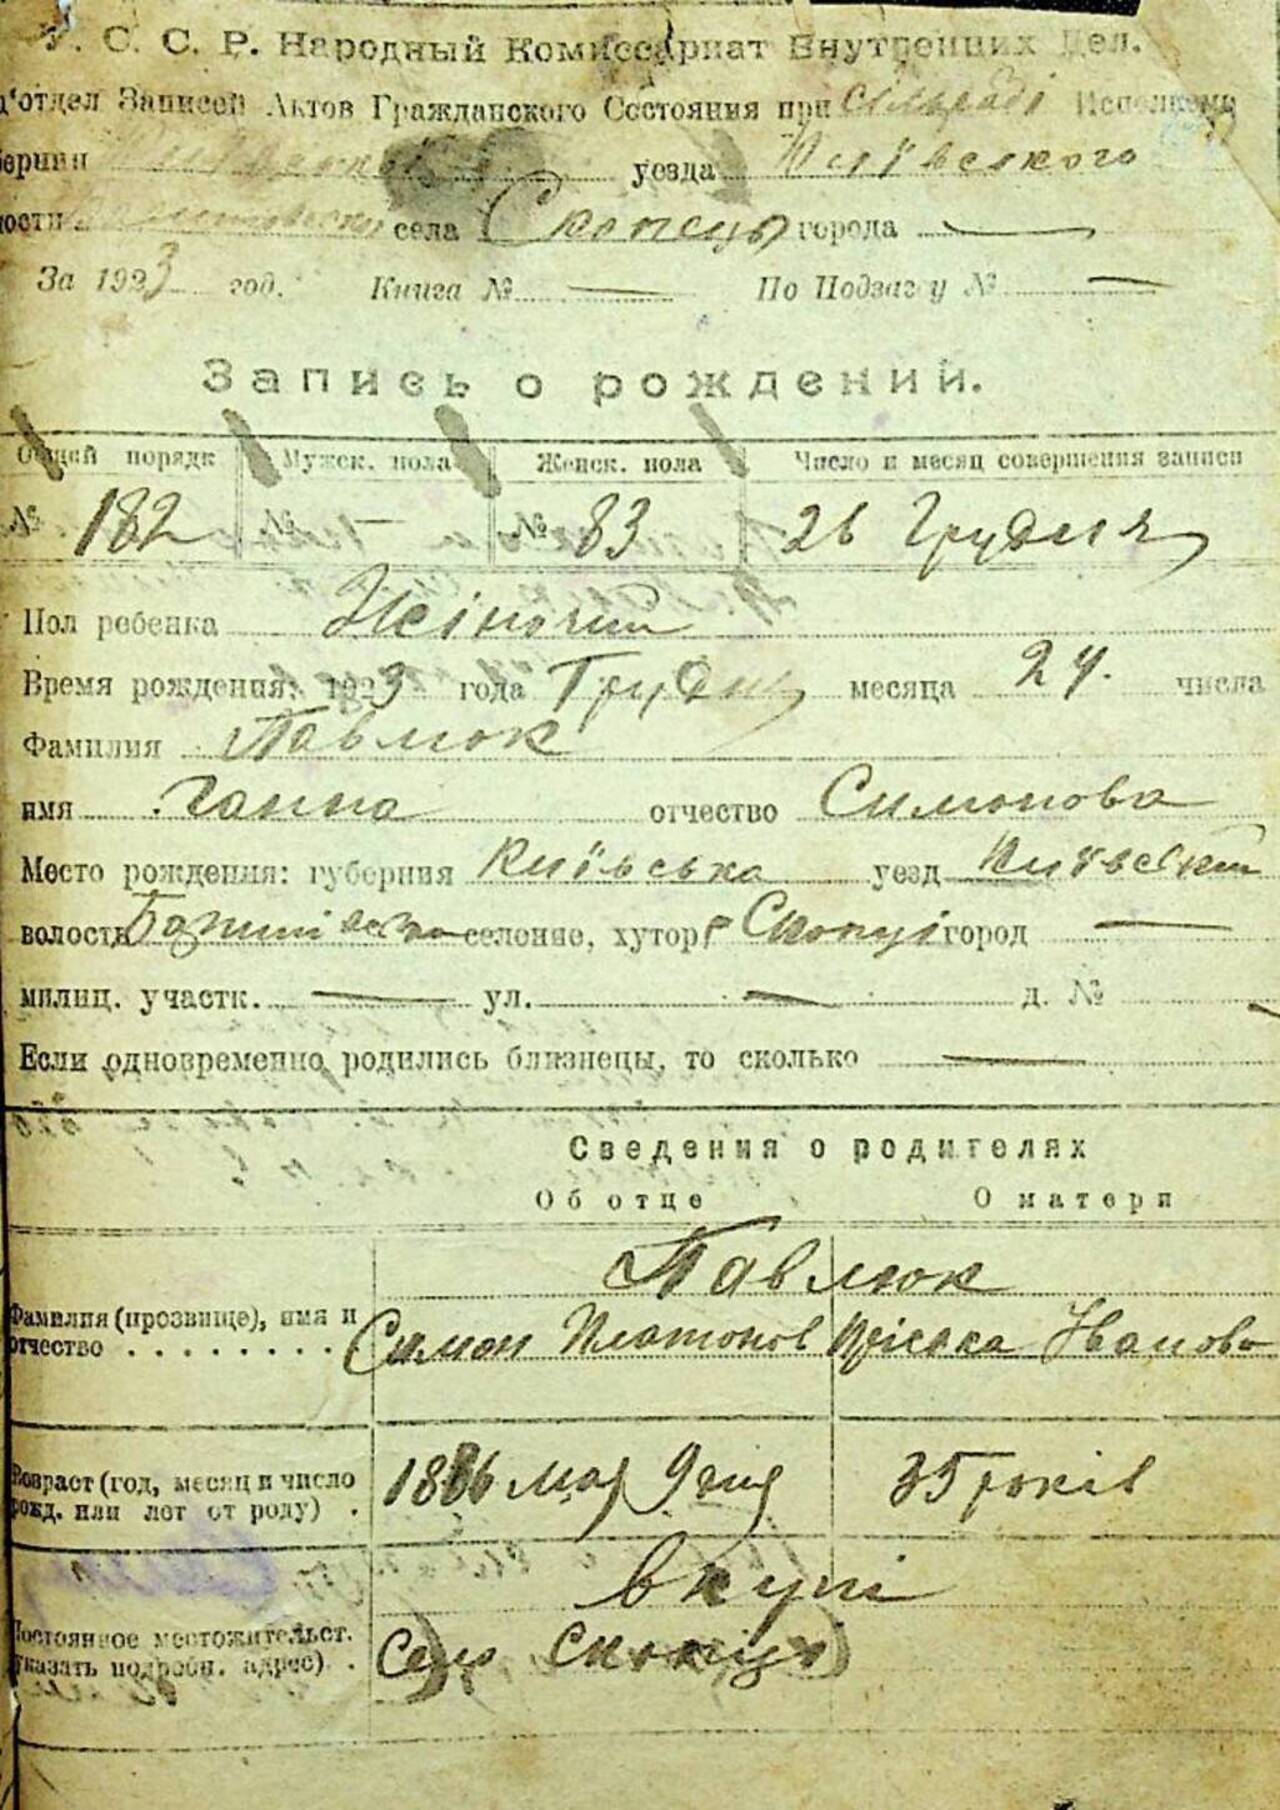 С. С. Р. Народный Комиссариат Внутренних Дел.
отдел Записей Актов Гражданского Состояния при сільраді Исполкома
уезда Київського
села Скопець города —
За 1923 год. Книга № — По Подзаг у № —
Запись о рождении.
Общей порядк Мужск. пола Женск. пола Число и месяц совершения записи
№ 182 № — № 83 26 Грудня
Пол ребенка Жіночий
Время рождения: 1923 года Грудня месяца 24. числа
Фамилия Павлюк
имя Ганна отчество Симонова
Место рождения: губерния Київська уезд Київский
волость селение, хутор Скопці город —
милиц. участк. — ул. — д. №
Если одновременно родились близнецы, то сколько —
Сведения о родителях
Об отце О матери
Павлюк
Фамилия (прозвище), имя и
отчество . . . . . . . . . Симон Платонов Пріська Іванова
Возраст (год, месяц и число
рожд. или лет от роду) . 1886 мая 9 дня 35 років
вкупі
Постоянное местожительст.
указать подробн. адрес) . Село Скопці